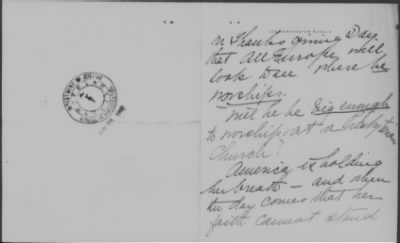 on Thanksgiving Day
that all Europe will
look to see where he
worships.
Will he be big enough
to worship at a Presbyterian
Church?
America is holding
her breath — and when
the day comes that her
faith cannot stand